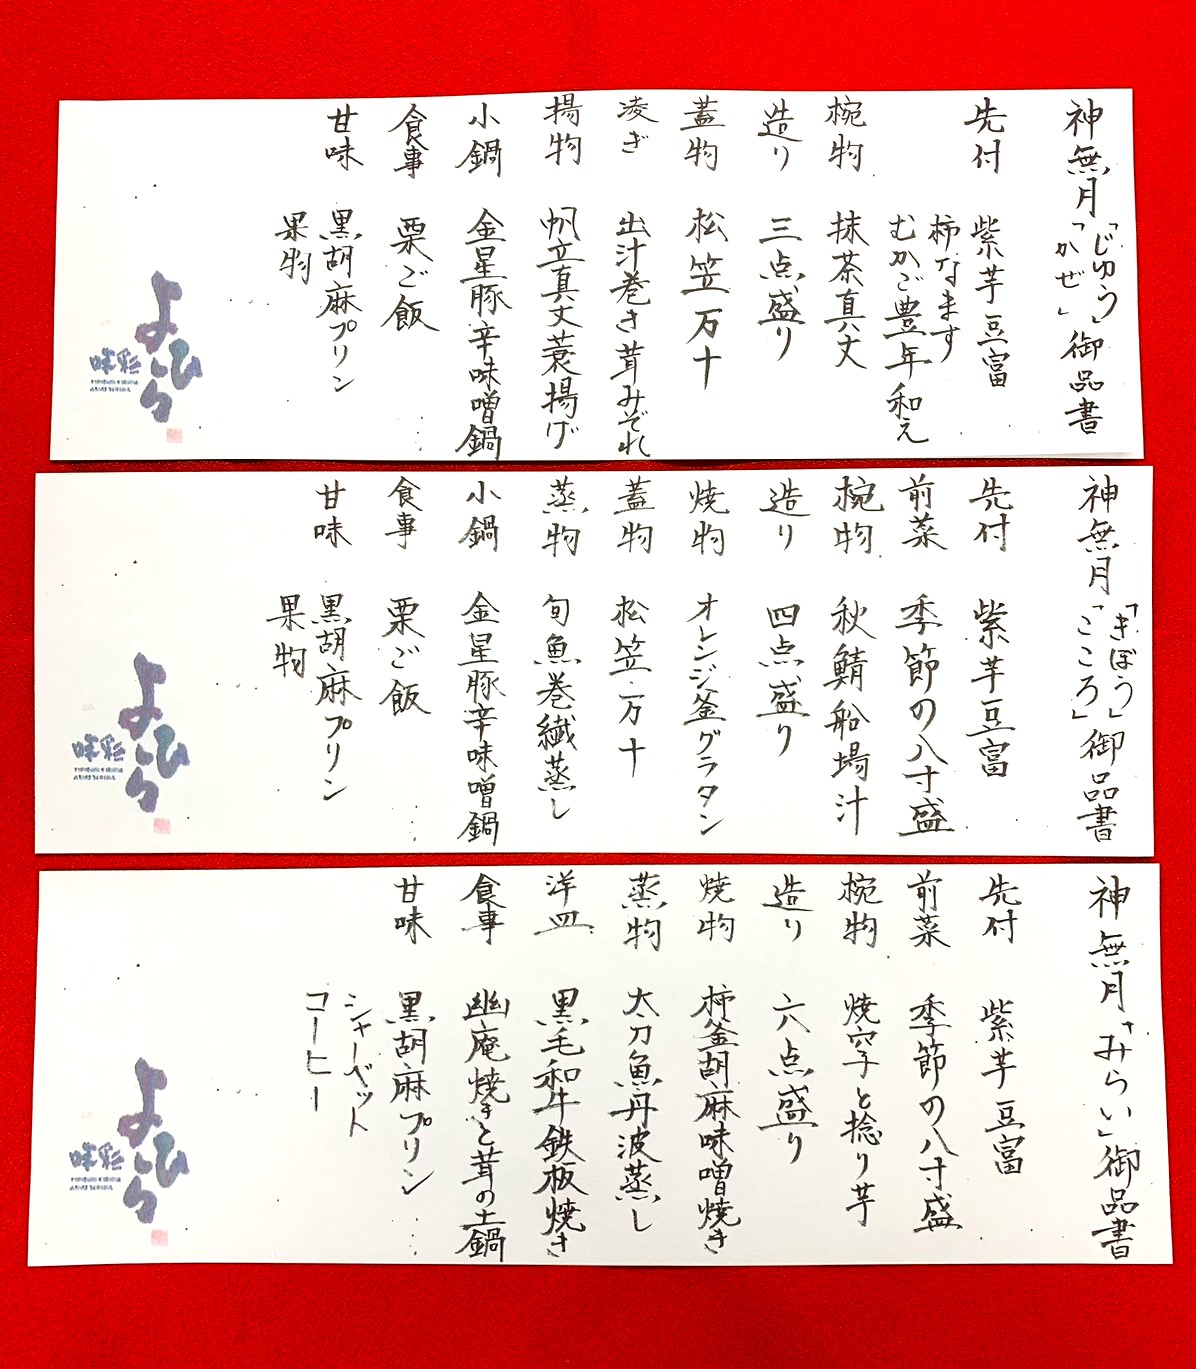 神無月「じゆう」「かぜ」御品書
先付 紫芋豆富
柿なます
むかご豊年和え
椀物 抹茶真丈
造り 三点盛り
蓋物 松笠万十
凌ぎ 出汁巻き茸みぞれ
揚物 帆立真丈蓑揚げ
小鍋 金星豚辛味噌鍋
食事 栗ご飯
甘味 黒胡麻プリン
果物
よひら
神無月「きぼう」「こころ」御品書
先付 紫芋豆富
前菜 季節の八寸盛
椀物 秋鯖船場汁
造り 四点盛り
焼物 オレンジ釜グラタン
蓋物 松笠万十
蒸物 旬魚巻繊蒸し
小鍋 金星豚辛味噌鍋
食事 栗ご飯
甘味 黒胡麻プリン
果物
よひら
神無月「みらい」御品書
先付 紫芋豆富
前菜 季節の八寸盛
椀物 焼穴子と捻り芋
造り 六点盛り
焼物 柿釜胡麻味噌焼き
蒸物 太刀魚丹波蒸し
洋皿 黒毛和牛鉄板焼き
食事 幽庵焼きと茸の土鍋
甘味 黒胡麻プリン
シャーベット
コーヒー
よひら